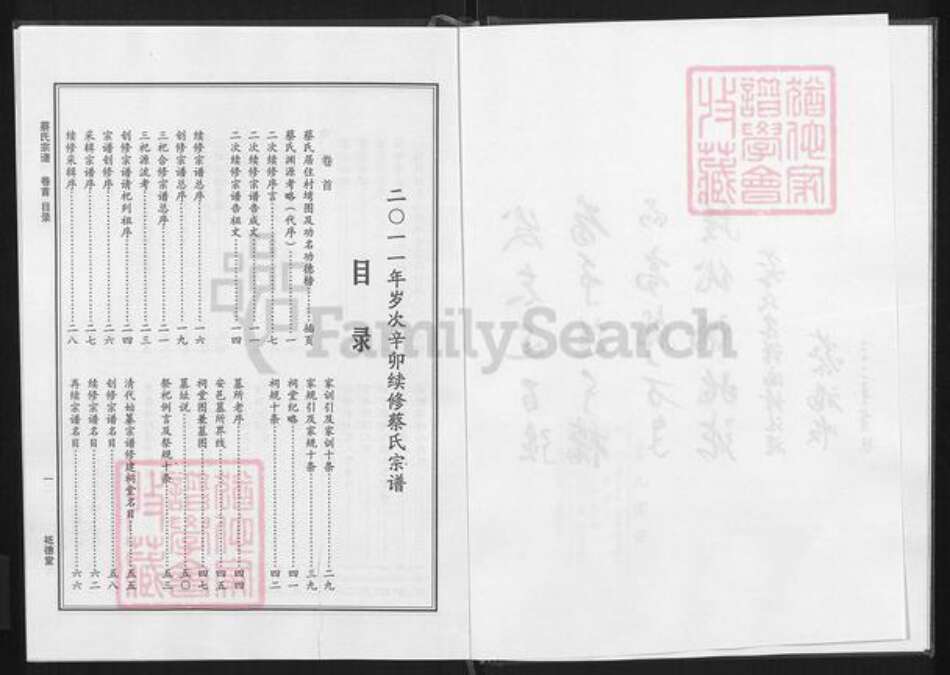 二〇一一年岁次辛卯续修蔡氏宗谱
目 录
卷 首
蔡氏居住村垮图及功名功德榜……插页
蔡氏渊源考略（代序）……一
二次续修序言……七
二次续修宗谱告成文……一一
二次续修宗谱告祖文……一四
续修宗谱总序……一六
创修宗谱总序……一九
三祀合修宗谱总序……二一
三祀源流考……二三
创修宗谱请祀列祖序……二四
宗谱创修序……二六
采辑宗谱序……二七
续修采辑序……二八
家训引及家训十条……二九
家规引及家规十条……三九
祠堂纪略……四一
祠规十条……四二
墓所老序……四四
安邑墓所界线……四五
祠堂图兼墓图……四七
墓址说……五〇
祭祀例言及祭规十条……五三
清代始纂宗谱修建祠堂名目……五五
创修宗谱名目……五八
续修宗谱名目……六二
再续宗谱名目……六六
蔡氏宗谱 卷首 目录
一
祗德堂
猶他家
譜學會
收藏
猶他家
譜學會
收藏
FamilySearch